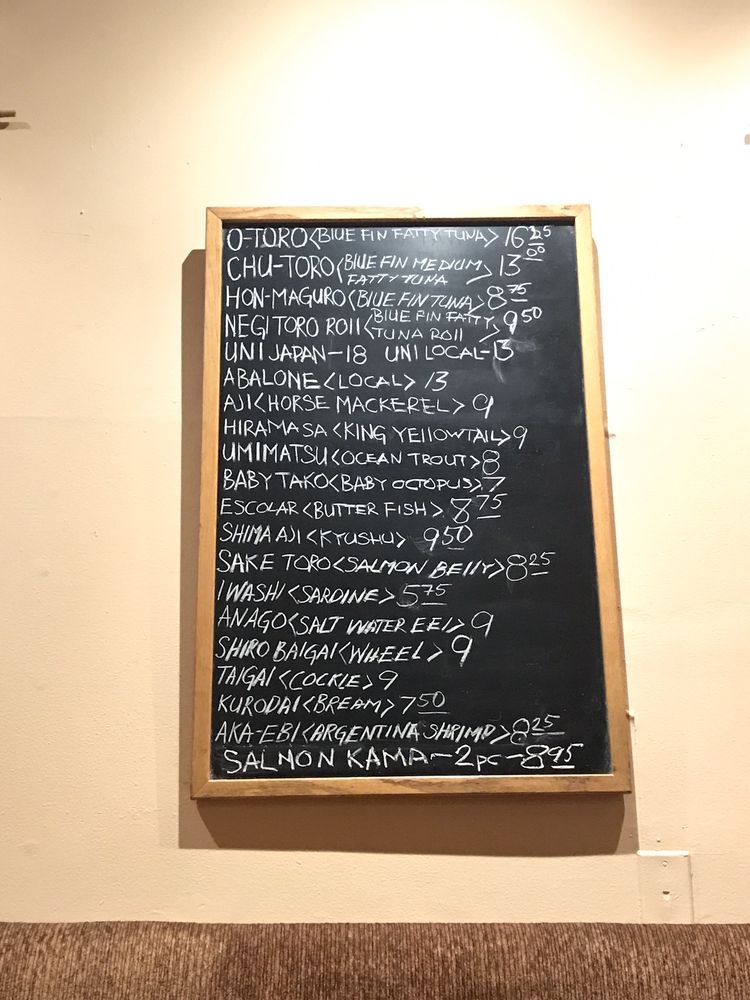 O-TORO<BLUE FIN FATTY TUNA> 16 25
CHU-TORO<BLUE FIN MEDIUM FATTY TUNA> 13 00
HON-MAGURO<BLUE FIN TUNA> 8 75
NEGI TORO ROLL<BLUE FIN FATTY TUNA ROLL> 9 50
UNI JAPAN-18 UNI LOCAL-13
ABALONE <LOCAL> 13
AJI<HORSE MACKEREL> 9
HIRAMASA <KING YELLOWTAIL> 9
UMIMATSU<OCEAN TROUT> 8
BABY TAKO<BABY OCTOPUS> 7
ESCOLAR <BUTTER FISH> 8 75
SHIMA AJI <KYUSHU> 9 50
SAKE TORO <SALMON BELLY> 8 25
IWASHI <SARDINE> 5 75
ANAGO<SALT WATER EEL> 9
SHIRO BAIGAI<WHEEL> 9
TAIGAI <COCKLE> 9
KURODAI <BREAM> 7 50
AKA-EBI <ARGENTINA SHRIMP> 8 25
SALMON KAMA-2pc-8 95